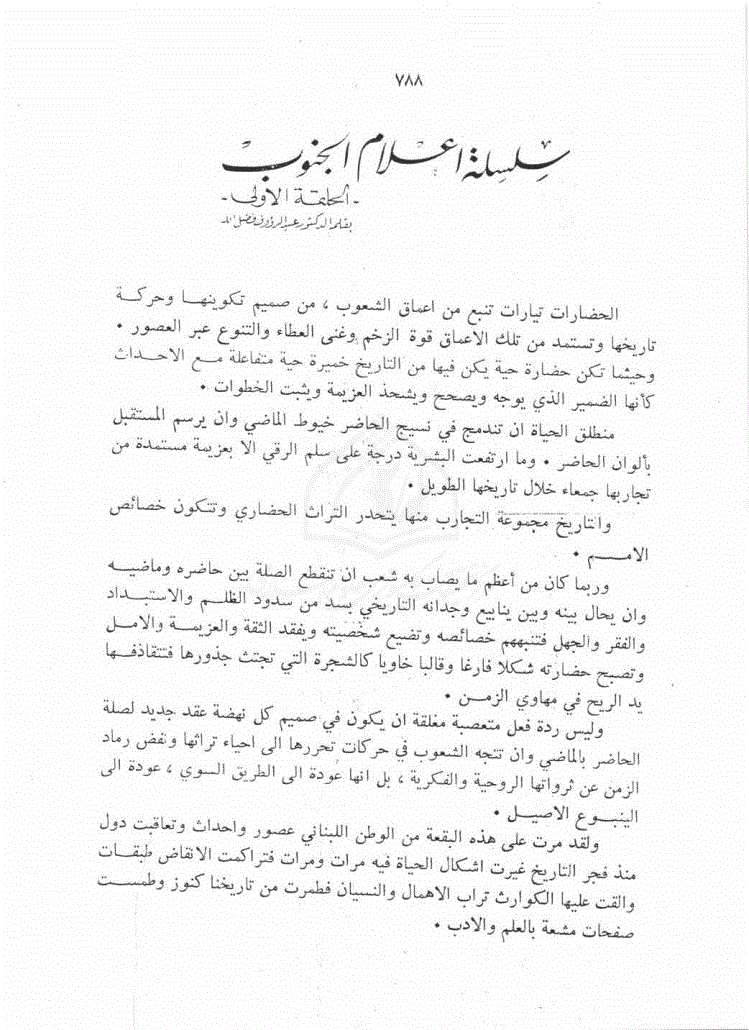 ٧٨٨
سلسلة اعلام الجنوب
- الحلقة الاولى -
بقلم الدكتور عبد الرؤوف فضل الله
الحضارات تيارات تنبع من اعماق الشعوب ، من صميم تكوينهـا وحركـة
تاريخها وتستمد من تلك الاعماق قوة الزخم وغنى العطاء والتنوع عبر العصور •
وحيثما تكن حضارة حية يكن فيها من التاريخ خميرة حية متفاعلة مـع الاحـداث
كأنها الضمير الذي يوجه ويصحح ويشحذ العزيمة ويثبت الخطوات •
منطلق الحياة ان تندمج في نسيج الحاضر خيوط الماضي وان يرسم المستقبل
بألوان الحاضر • وما ارتفعت البشرية درجة على سلم الرقي الا بعزيمة مستمدة من
تجاربها جمعاء خلال تاريخها الطويل •
والتاريخ مجموعة التجارب منها يتحدر التراث الحضاري وتتكون خصائص
الامـم •
وربما كان من أعظم ما يصاب به شعب ان تنقطع الصلة بين حاضره وماضيـه
وان يحال بينه وبين ينابيع وجدانه التاريخي بسد من سدود الظلـم والاستبـداد
والفقر والجهل فتنبههم خصائصه وتضيع شخصيته ويفقد الثقة والعزيمـة والامل
وتصبح حضارته شكلا فارغا وقالبا خاويا كالشجرة التي تجتث جذورها فتتقاذفـها
يد الريح في مهاوي الزمـن •
وليس ردة فعل متعصبة مغلقة ان يكون في صميم كل نهضة عقد جديد لصلة
الحاضر بالماضي وان تتجه الشعوب في حركات تحررها الى احياء تراثها ونفض رماد
الزمن عن ثرواتها الروحية والفكرية ، بل انها عودة الى الطريق السوي ، عودة الى
الينبـوع الاصيـل •
ولقد مرت على هذه البقعة من الوطن اللبناني عصور واحداث وتعاقبت دول
منذ فجر التاريخ غيرت اشكال الحياة فيه مرات ومرات فتراكمت الانقاض طبقات
والقت عليها الكوارث تراب الاهمال والنسيان فطمرت من تاريخنا كنوز وطمسـت
صفحات مشعة بالعلم والادب •